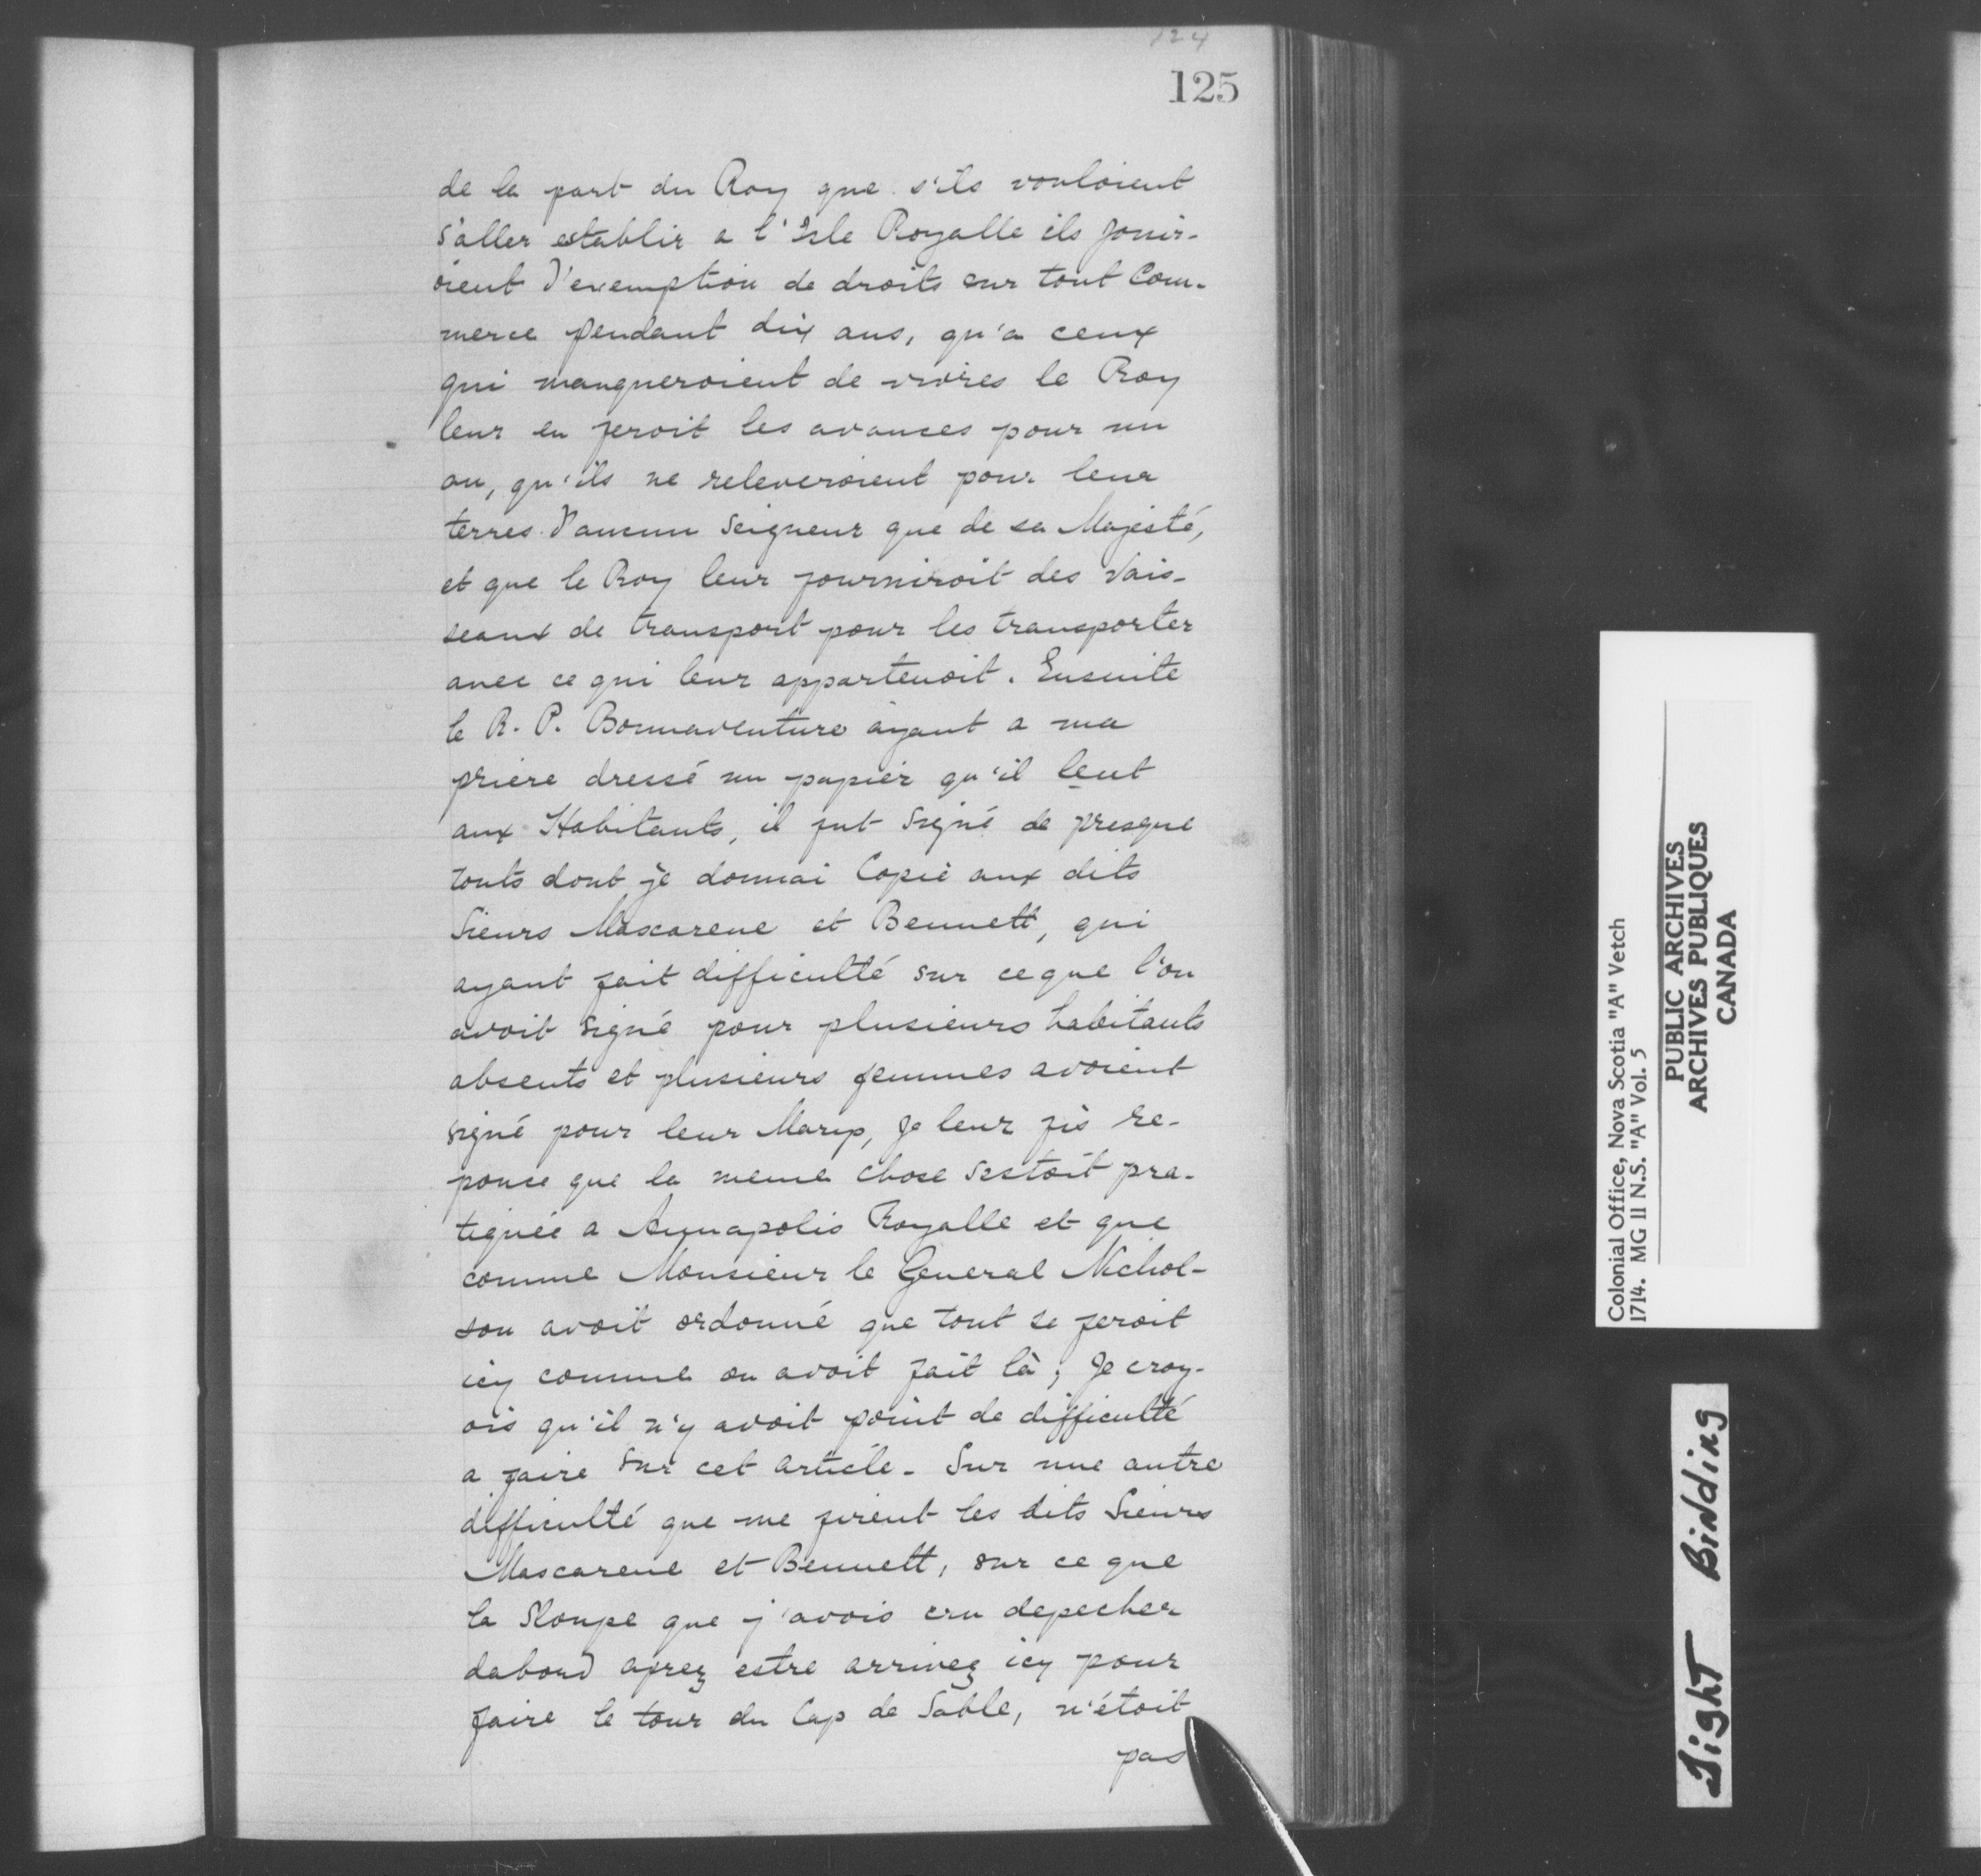 124
125
de la part du Roy que s'ils vouloient
s'aller establir a l'Isle Royalle ils jouir-
oient d'exemption de droits sur tout Com-
merce pendant dix ans, qu'a ceux
qui manqueroient de vivres le Roy
leur en feroit les avances pour un
an, qu'ils ne releveroient pour leur
terres d'aucun Seigneur que de sa Majesté,
et que le Roy leur fourniroit des Vais-
seaux de transport pour les transporter
avec ce qui leur appartenoit. Ensuite
le R. P. Bonnaventure ayant a ma
priere dressé un papier qu'il leut
aux Habitants, il fut Signé de presque
touts dont je donnai Copie aux dits
Sieurs Mascarene et Bennett, qui
ayant fait difficulté sur ce que l'on
avoit signé pour plusieurs habitants
absents et plusieurs femmes avoient
signé pour leur Marys, je leur fis re-
ponse que la meme chose sestoit pra-
tiquée a Annapolis Royalle et que
comme Monsieur le General Nichol-
son avoit ordonné que tout se feroit
icy comme on avoit fait là; Je croy-
ois qu'il n'y avoit point de difficulté
a faire sur cet article. Sur une autre
difficulté que me firent les dits Sieurs
Mascarene et Bennett, sur ce que
la Sloupe que j'avois cru depecher
dabord aprez estre arrivez icy pour
faire le tour du Cap de Sable, n'étoit
pas
Colonial Office, Nova Scotia "A" Vetch
1714. MG 11 N.S. "A" Vol. 5
PUBLIC ARCHIVES
ARCHIVES PUBLIQUES
CANADA
Tight Binding